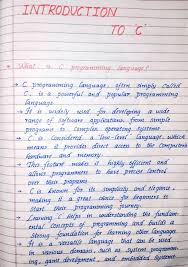 INTRODUCTION
TO C
What is C programming language?
→ C programming language, often simply called
C, is a powerful and popular programming
language.
→ It is widely used for developing a wide
range of software applications, from simple
programs to complex operating systems
→ C is considered a "low-level" language, which
means it provides direct access to the computers
hardware and memory.
→ This feature makes it highly efficient and
allows programmers to have precise control
over their programs
→ C is known for its simplicity and elegance,
making it a great choice for beginners to
start their programming journey.
→ Learning C helps in understanding the funda-
mental concepts of programming and builds a
strong foundation for learning other languages.
→ It is a versatile language that can be used
in various domains, such as system programm-
ing, game development, and embedded systems.